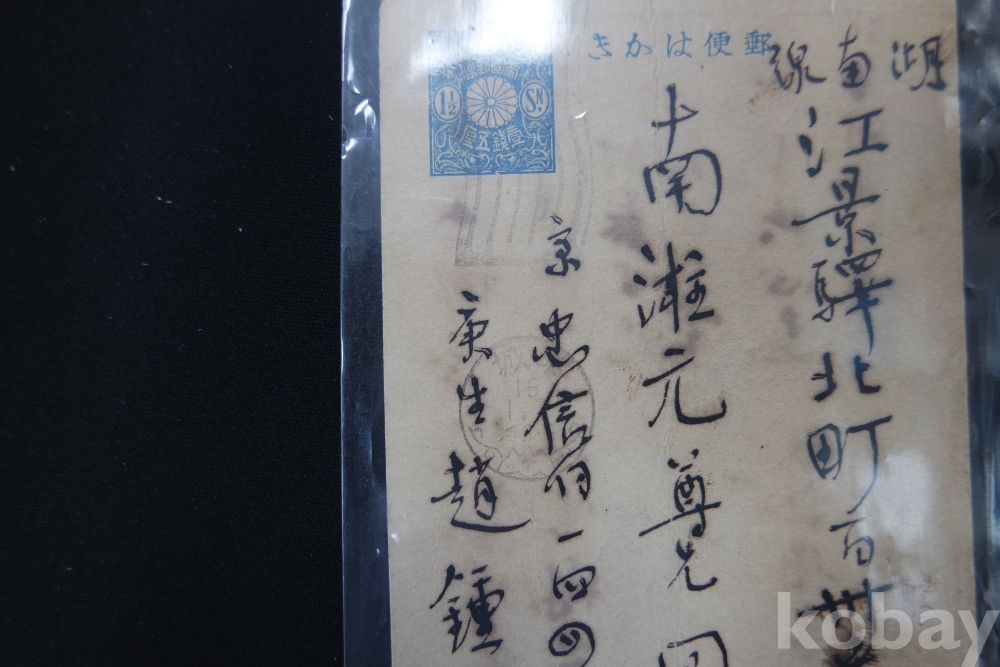 郵便はかき
1½ Sn.
壹錢五厘
湖南線
江景驛北町百
南 元尊兄
京 忠信 一四四
庚生趙鍾
kobay